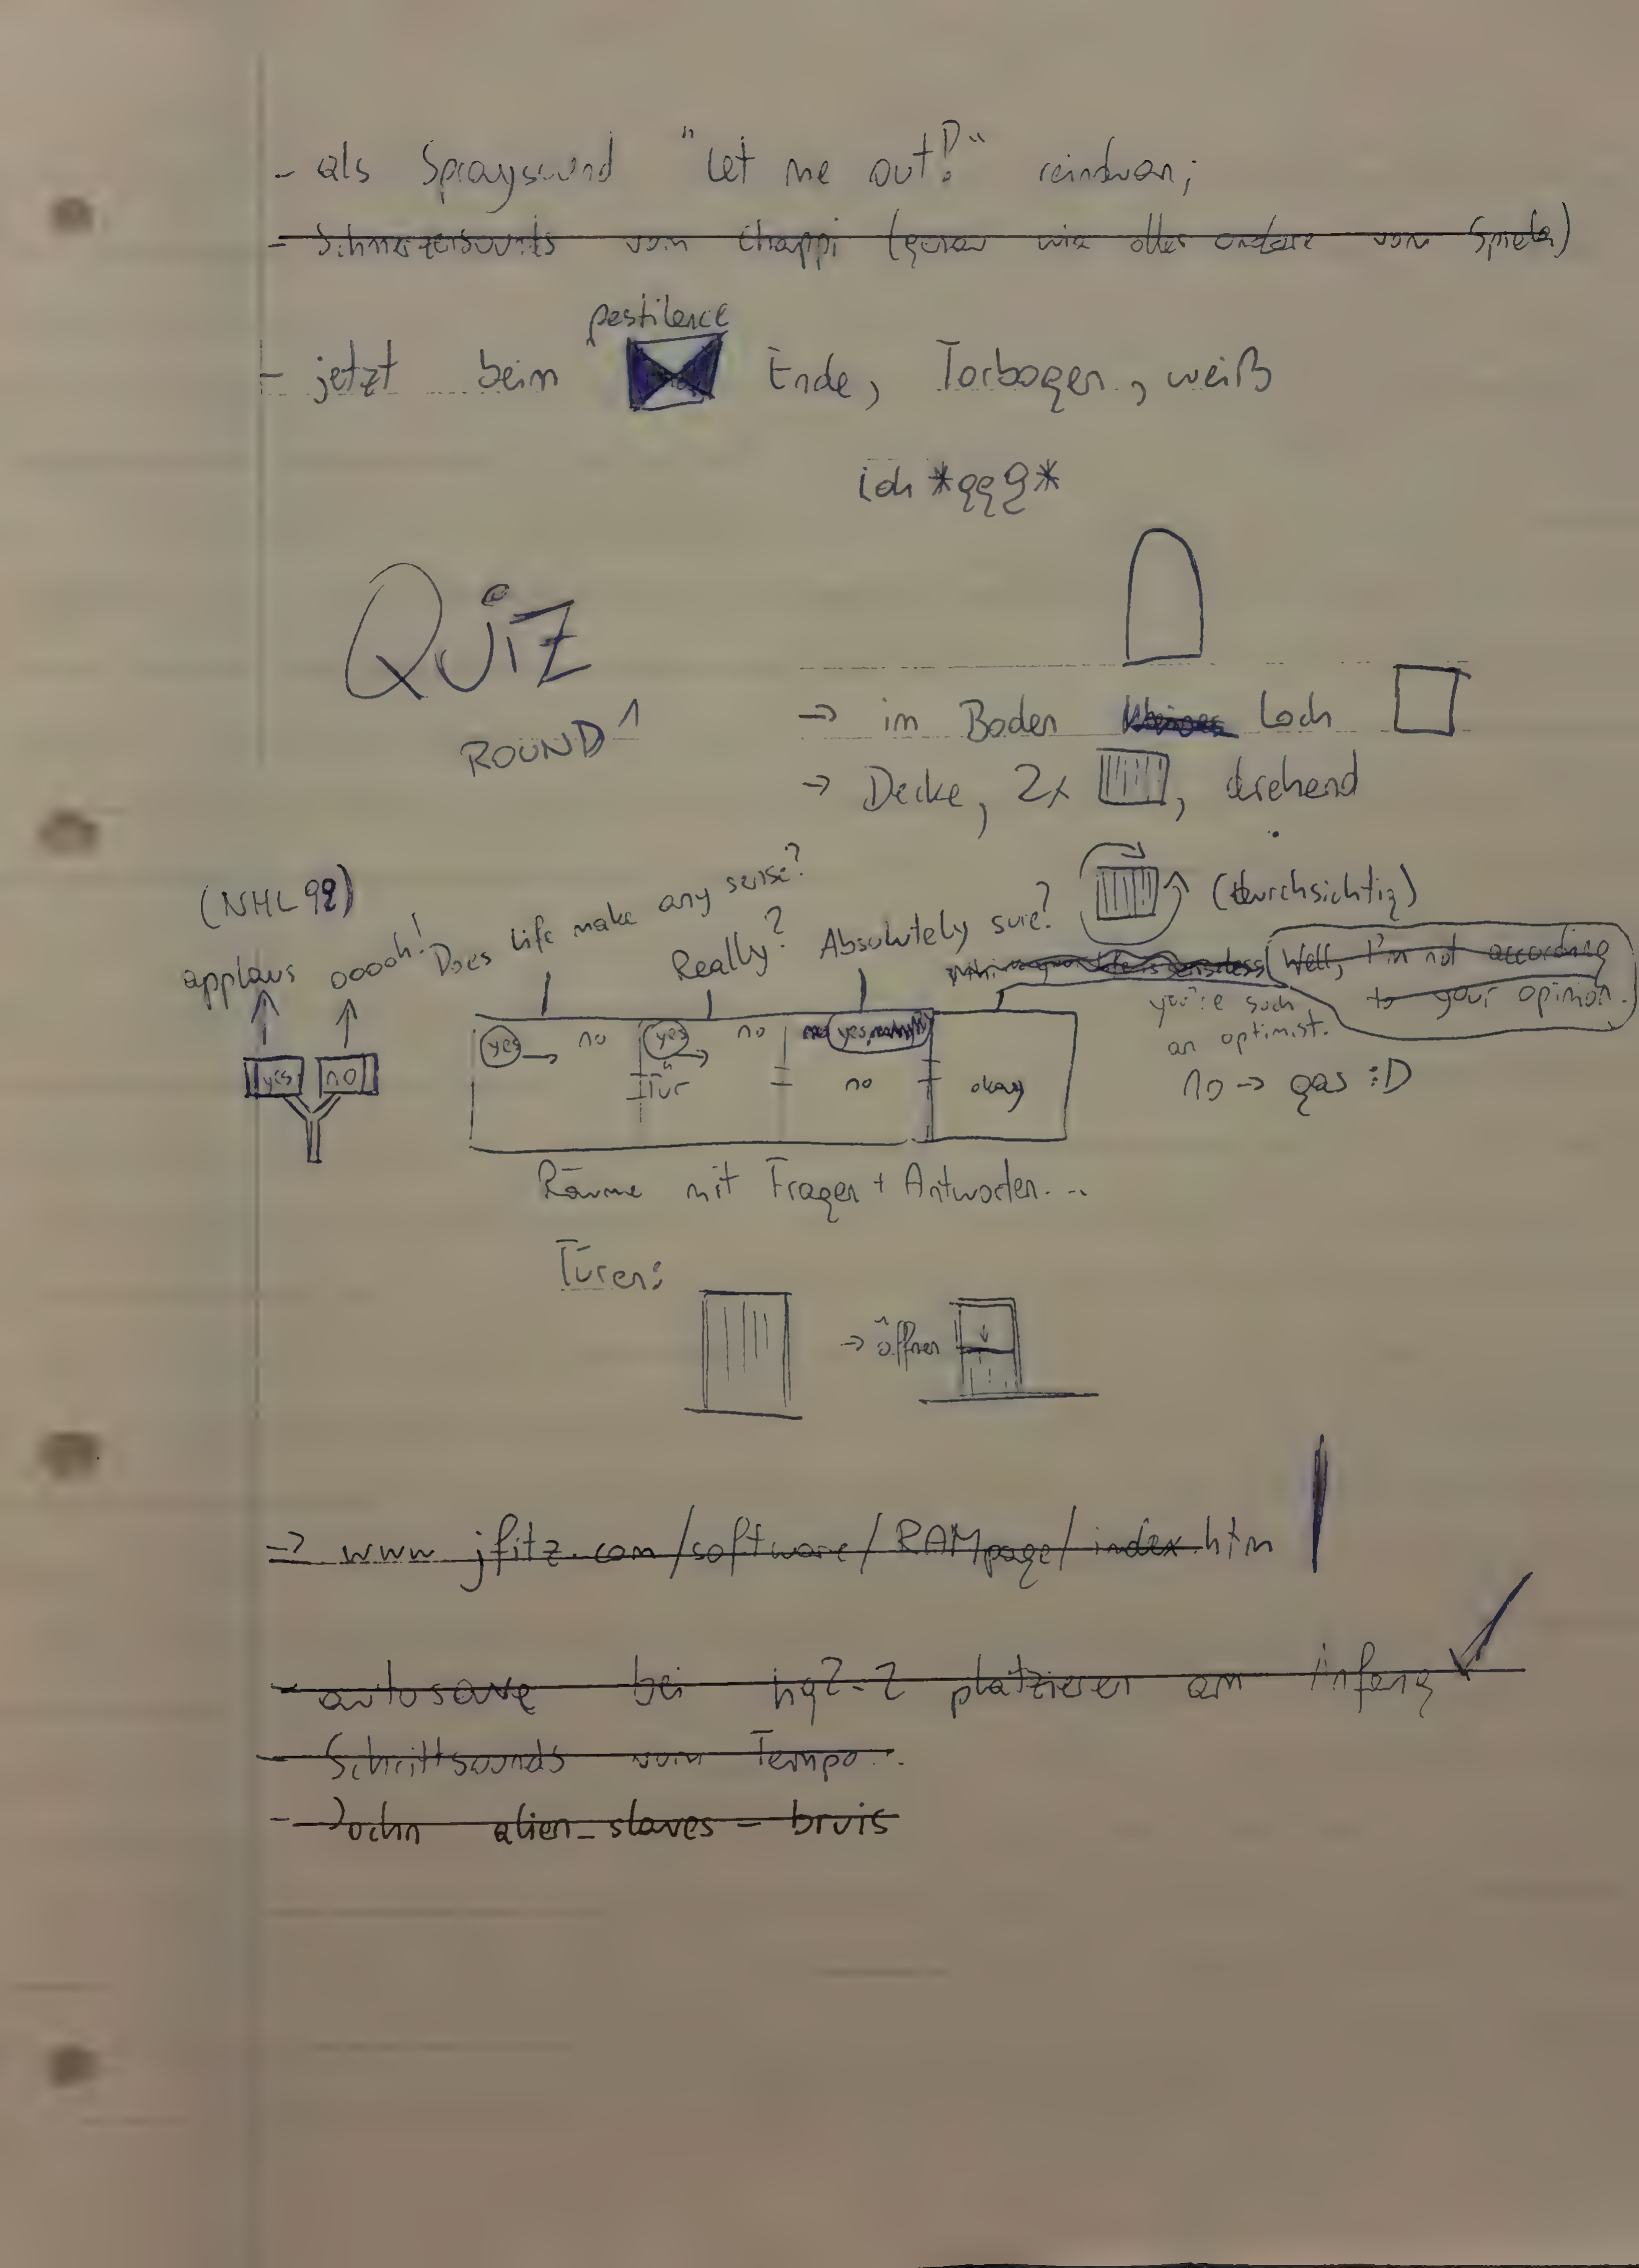 - als Spraysound "Let me out!" reintun;
- Schmerzsounds vom Chappi (genau wie alles andere vom Spieler)
pestilence
- jetzt beim Ende, Torbogen, weiß
ich *ggg*
QUiZ
ROUND 1
→ im Boden Loch
→ Decke, 2x , drehend
(durchsichtig)
(NHL 92)
applaus oooh!
yes no
Does life make any sense?
Really?
Absolutely sure?
Well, I'm not according
to your opinion.
you're such
an optimist.
yes → no yes → no yes,
Tür no okay
no → gas :D
Räume mit Fragen + Antworten...
Türen:
→ öffnen
→ www.jfitz.com/software/RAMpage/index.htm
- autosave bei hq2-2 platzieren am Anfang
- Schrittsounds vom Tempo..
- alien_slaves - bruis